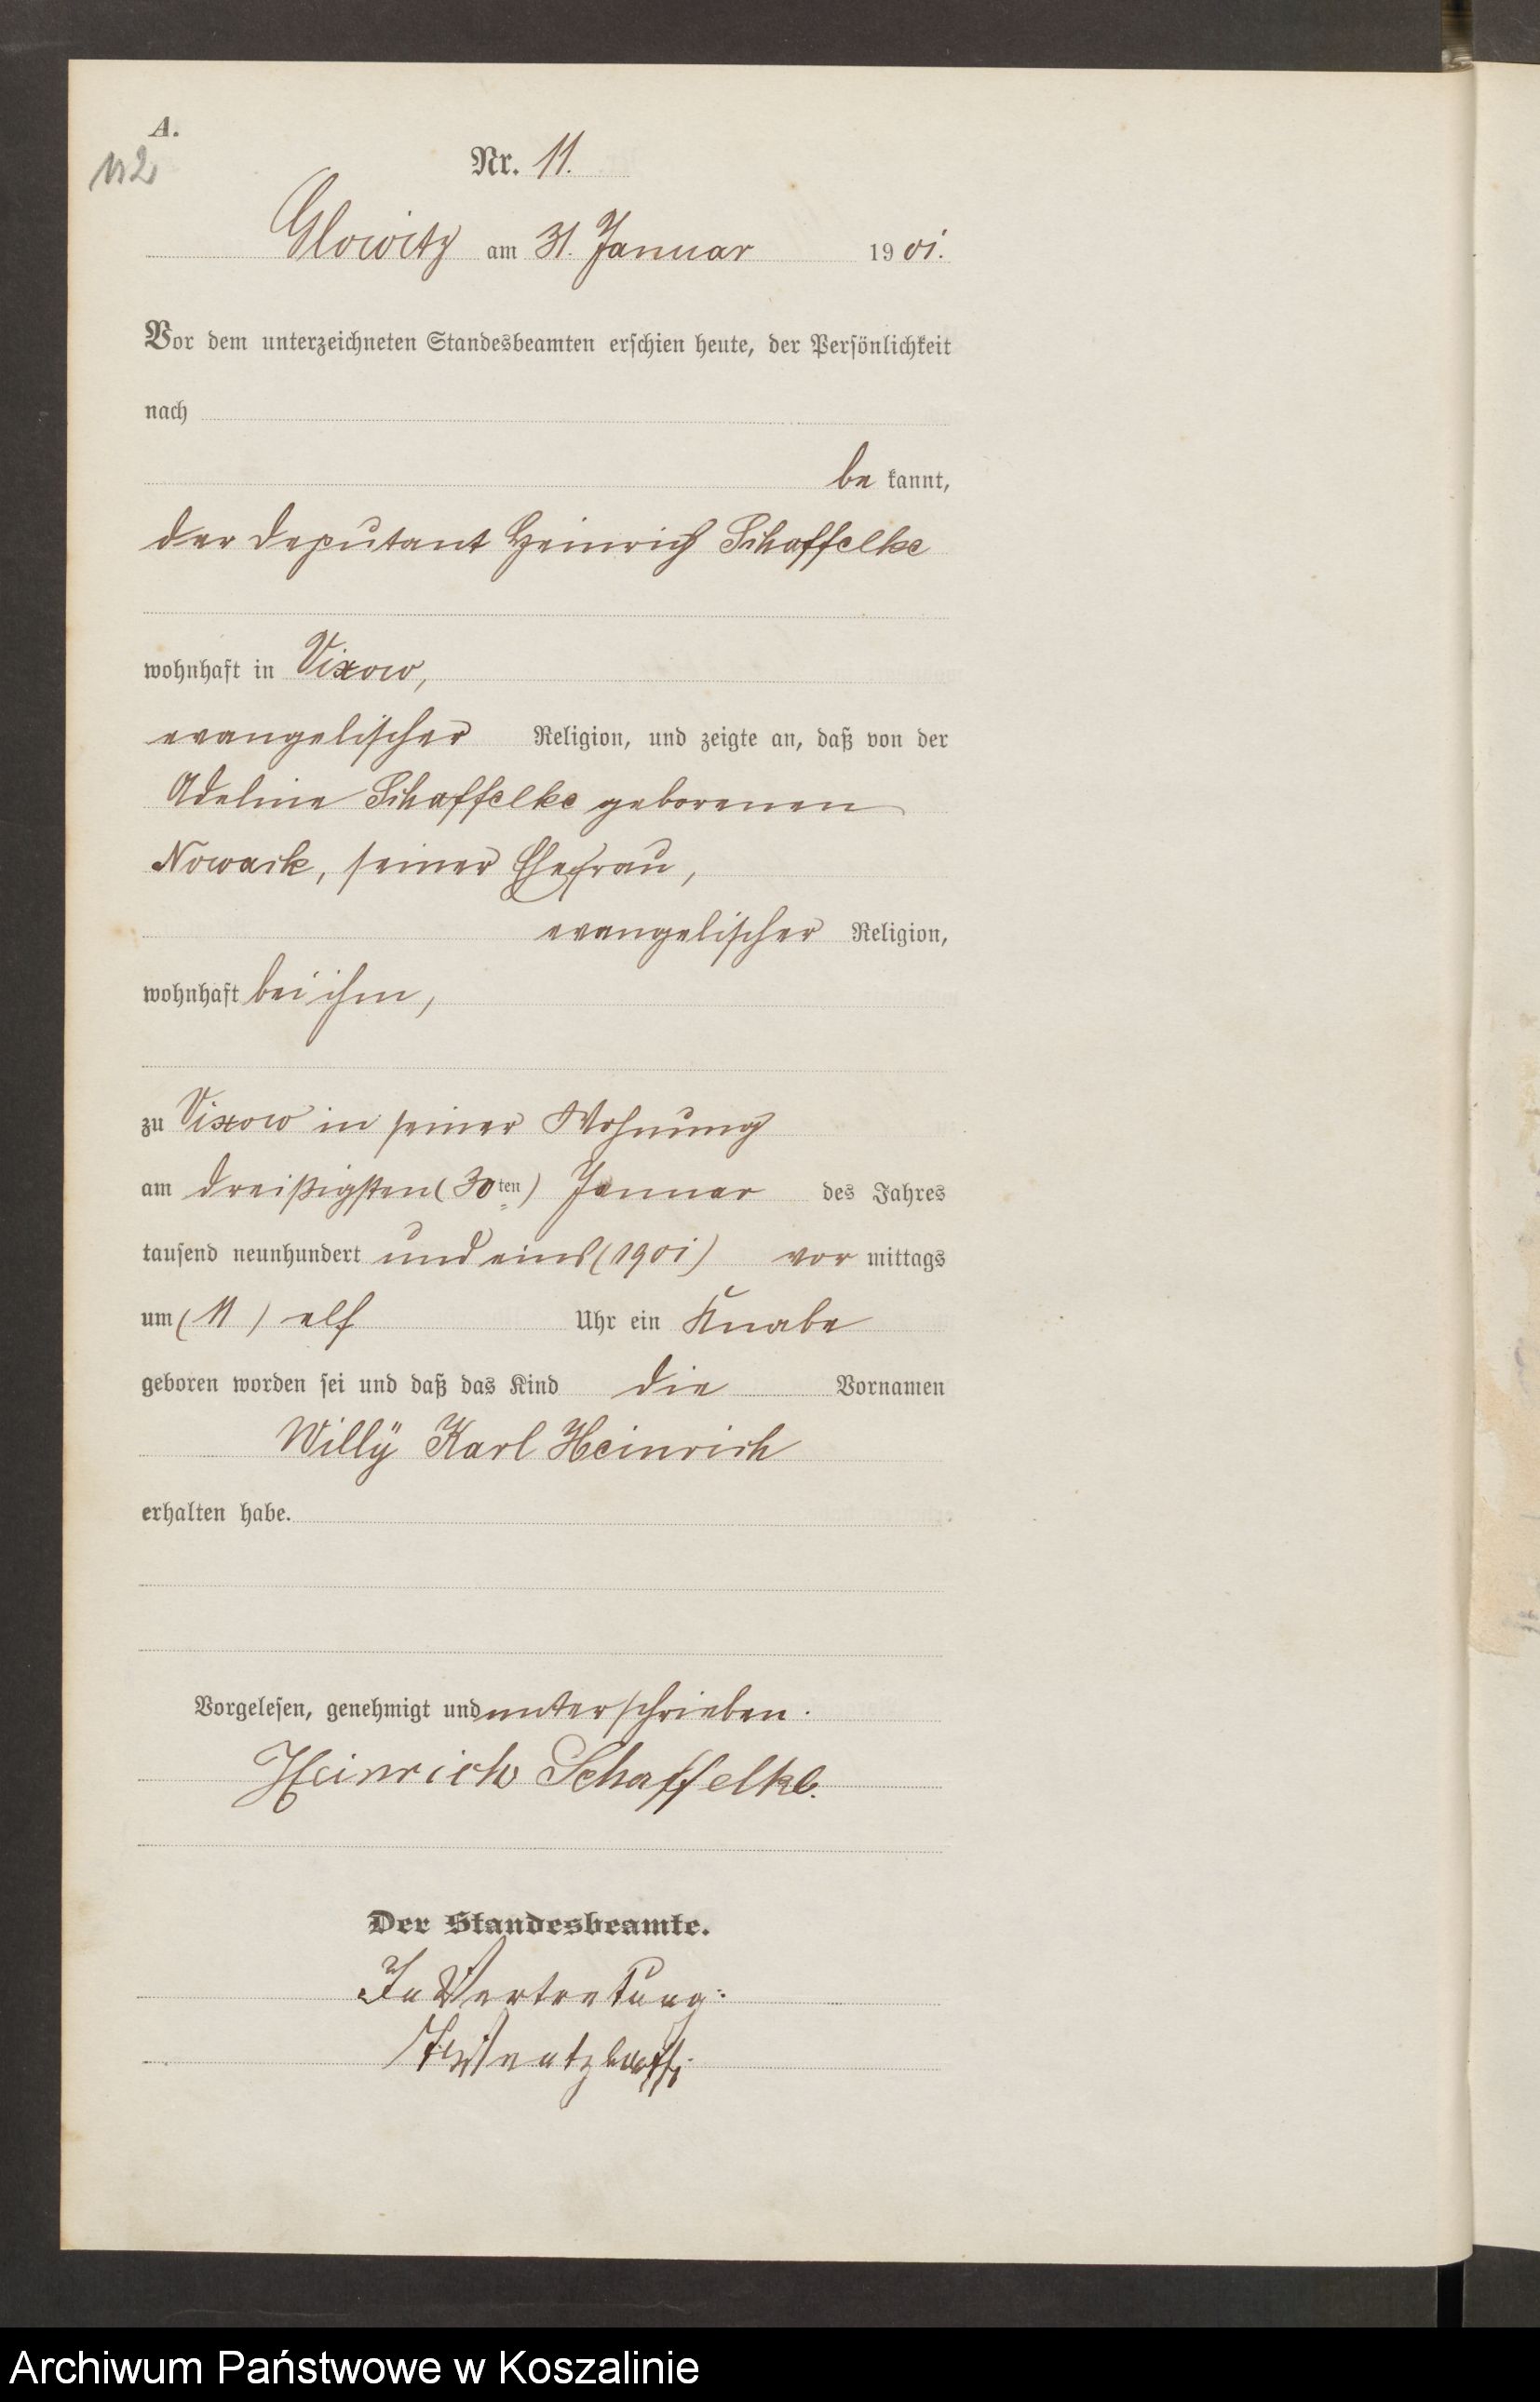 A.
Nr. 11.
Glowitz am 31. Januar 1901.
Vor dem unterzeichneten Standesbeamten erschien heute, der Persönlichkeit
nach
be kannt,
der Deputant Heinrich Schaffelke
wohnhaft in Vixow,
evangelischer Religion, und zeigte an, daß von der
Adeline Schaffelke geborenen
Nowack, seiner Ehefrau,
evangelischer Religion,
wohnhaft bei ihm,
zu Vixow in seiner Wohnung
am dreißigsten (30ten) Januar des Jahres
tausend neunhundert und eins (1901) vor mittags
um (11) elf Uhr ein Knabe
geboren worden sei und daß das Kind die Vornamen
Willÿ Karl Heinrich
erhalten habe.
Vorgelesen, genehmigt und unterschrieben.
Heinrich Schaffelke.
Der Standesbeamte.
In Vertretung:
Archiwum Państwowe w Koszalinie